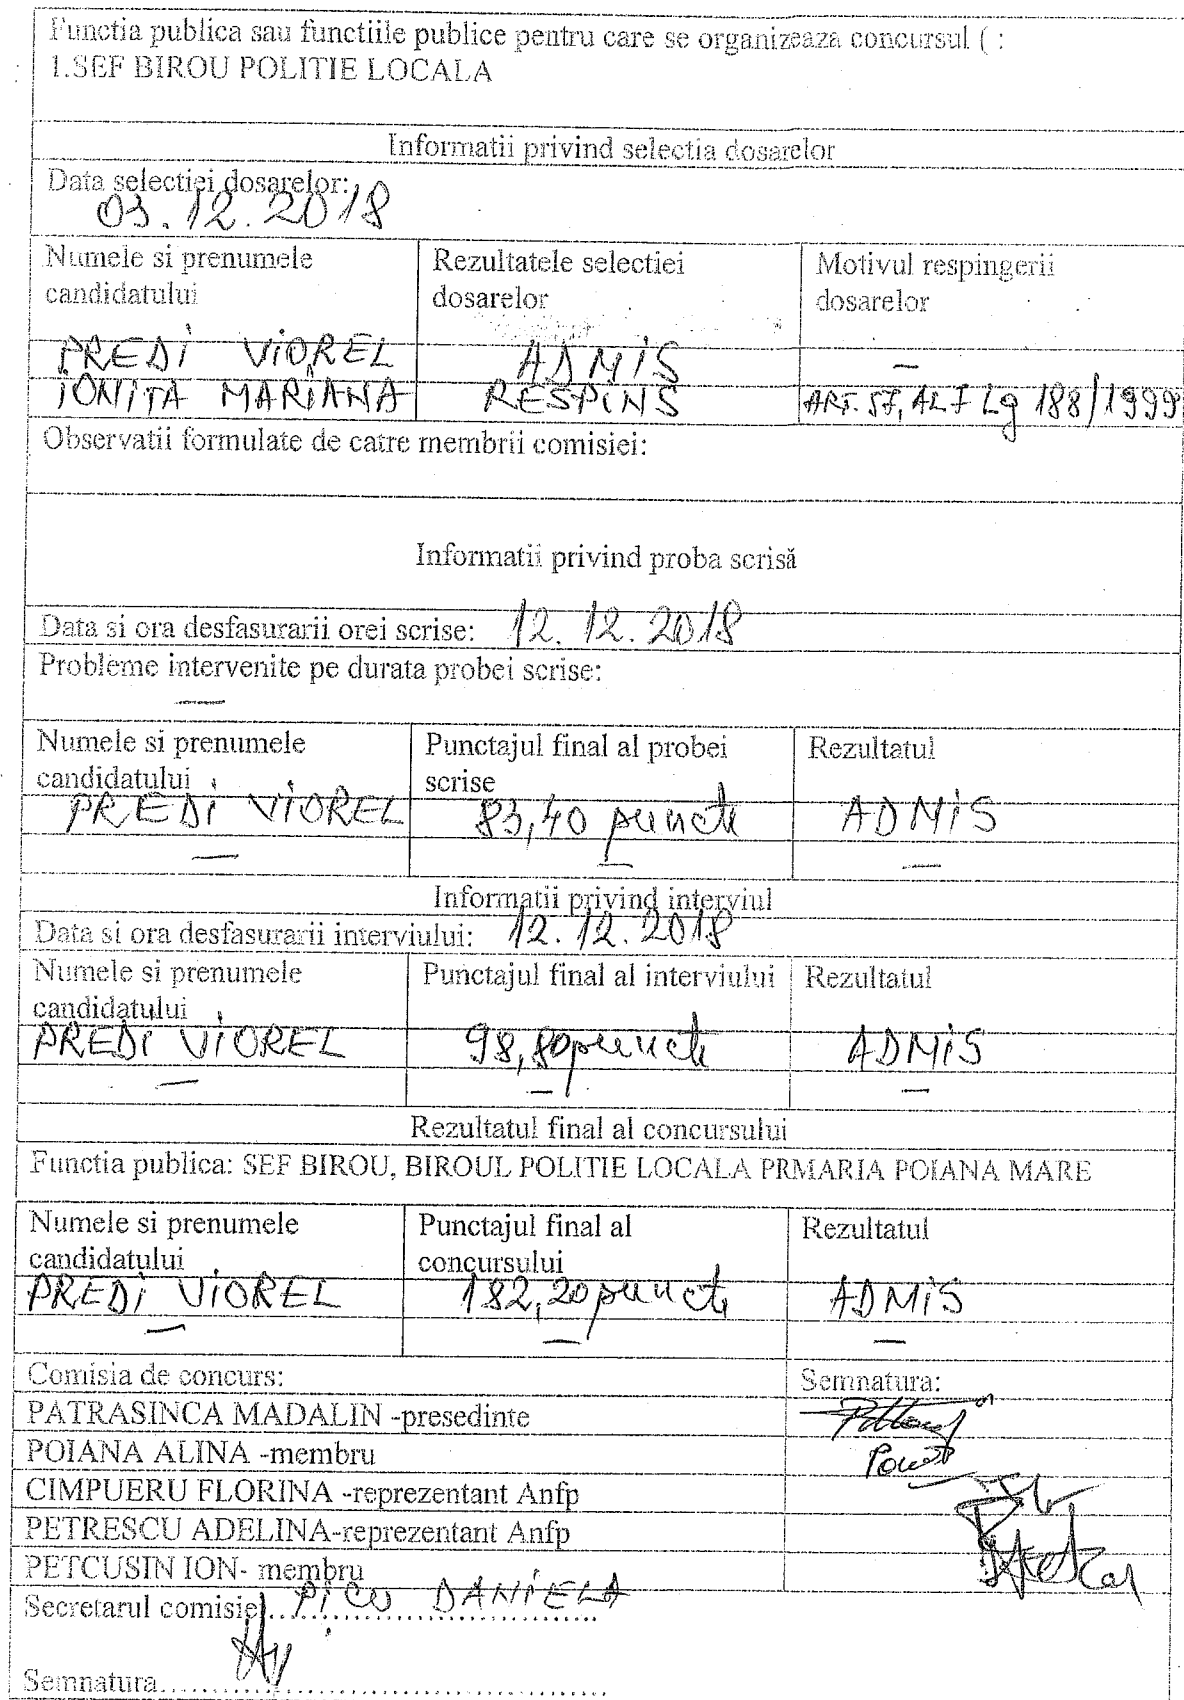 Functia publica sau functiile publice pentru care se organizeaza concursul ( :
1.SEF BIROU POLITIE LOCALA
Informatii privind selectia dosarelor
Data selectiei dosarelor:
03.12.2018
Numele si prenumele candidatului
Rezultatele selectiei dosarelor
Motivul respingerii dosarelor
PREDI VIOREL ADMIS —
IONITA MARIANA RESPINS ART. 57, AL 7 Lg 188/1999
Observatii formulate de catre membrii comisiei:
Informatii privind proba scrisă
Data si ora desfasurarii orei scrise: 12.12.2018
Probleme intervenite pe durata probei scrise:
—
Numele si prenumele candidatului
Punctajul final al probei scrise
Rezultatul
PREDI VIOREL 83,40 puncte ADMIS
— — —
Informatii privind interviul
Data si ora desfasurarii interviului: 12.12.2018
Numele si prenumele candidatului
Punctajul final al interviului
Rezultatul
PREDI VIOREL 98,80 puncte ADMIS
— — —
Rezultatul final al concursului
Functia publica: SEF BIROU, BIROUL POLITIE LOCALA PRMARIA POIANA MARE
Numele si prenumele candidatului
Punctajul final al concursului
Rezultatul
PREDI VIOREL 182,20 puncte ADMIS
— — —
Comisia de concurs: Semnatura:
PATRASINCA MADALIN -presedinte
POIANA ALINA -membru
CIMPUERU FLORINA -reprezentant Anfp
PETRESCU ADELINA-reprezentant Anfp
PETCUSIN ION- membru
Secretarul comisiei..PICU DANIELA
Semnatura..........